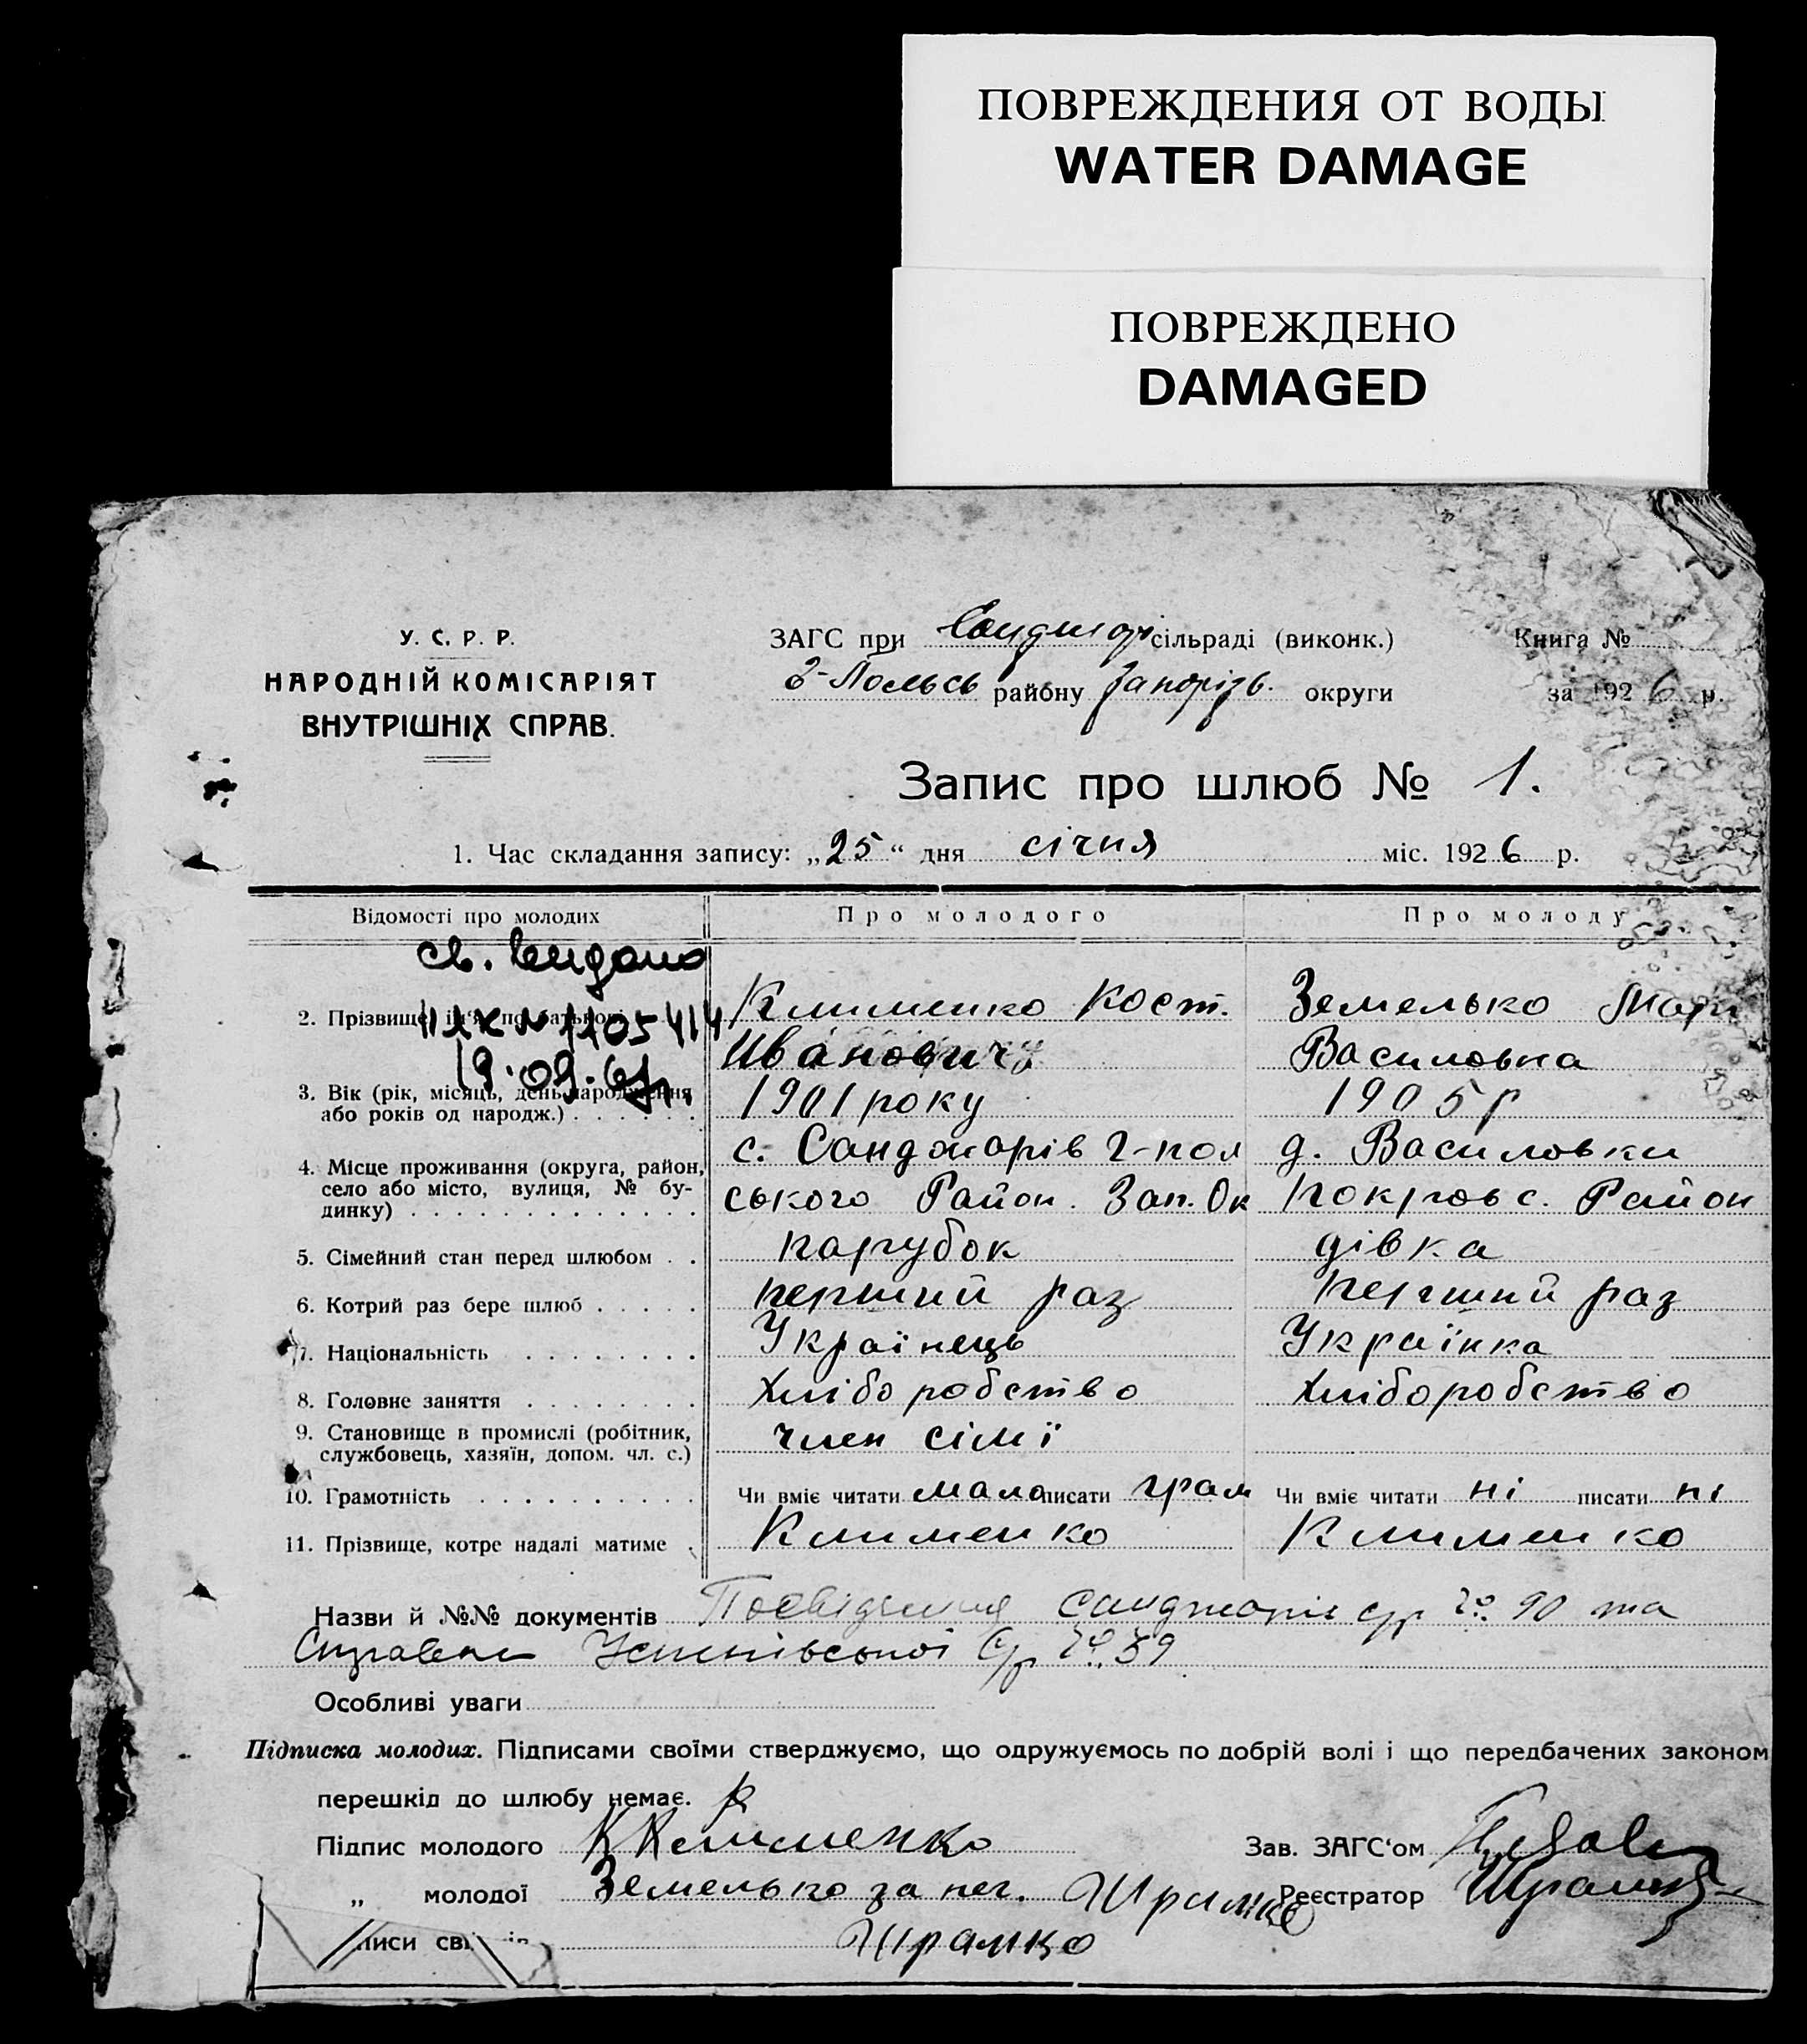 ПОВРЕЖДЕНИЯ ОТ ВОДЫ
WATER DAMAGE
ПОВРЕЖДЕНО
DAMAGED
У. С. Р. Р.
НАРОДНІЙ КОМІСАРІЯТ
ВНУТРІШНІХ СПРАВ.
ЗАГС при Санджар сільраді (виконк.)
Г-Польсь району Запорізь. округи
Книга №
за 1926 р.
Запис про шлюб № 1.
1. Час складання запису: „25“ дня січня міс. 1926 р.
Відомості про молодих Про молодого Про молоду
св. видано
2. Прізвище, ім'я, по батькові Клименко Кост. Земелько Мари
Івановичу Василовка
19.09.67
3. Вік (рік, місяць, день народження або років од народж.) 1901 року 1905 р
4. Місце проживання (округа, район, с. Санджарів Г-пол д. Василовки
село або місто, вулиця, № будинку) ського Район. Зап. Ок Покровс. Район
5. Сімейний стан перед шлюбом парубок дівка
6. Котрий раз бере шлюб перший раз перший раз
7. Національність Українець Українка
8. Головне заняття Хліборобство Хліборобство
9. Становище в промислі (робітник, службовець, хазяїн, допом. чл. с.) член сімї
10. Грамотність Чи вміє читати мало писати грам Чи вміє читати ні писати ні
11. Прізвище, котре надалі матиме Клименко Клименко
Назви й №№ документів Посвідчення Санджарів с/р № 90 та
Справки Успенівської С/р № 39
Особливі уваги
Підписка молодих. Підписами своїми стверджуємо, що одружуємось по добрій волі і що передбачених законом
перешкід до шлюбу немає.
Підпис молодого К Клименко Зав. ЗАГС'ом
„ молодої Земелько за нег. Шрамко Реєстратор Шрамко
Шрамко